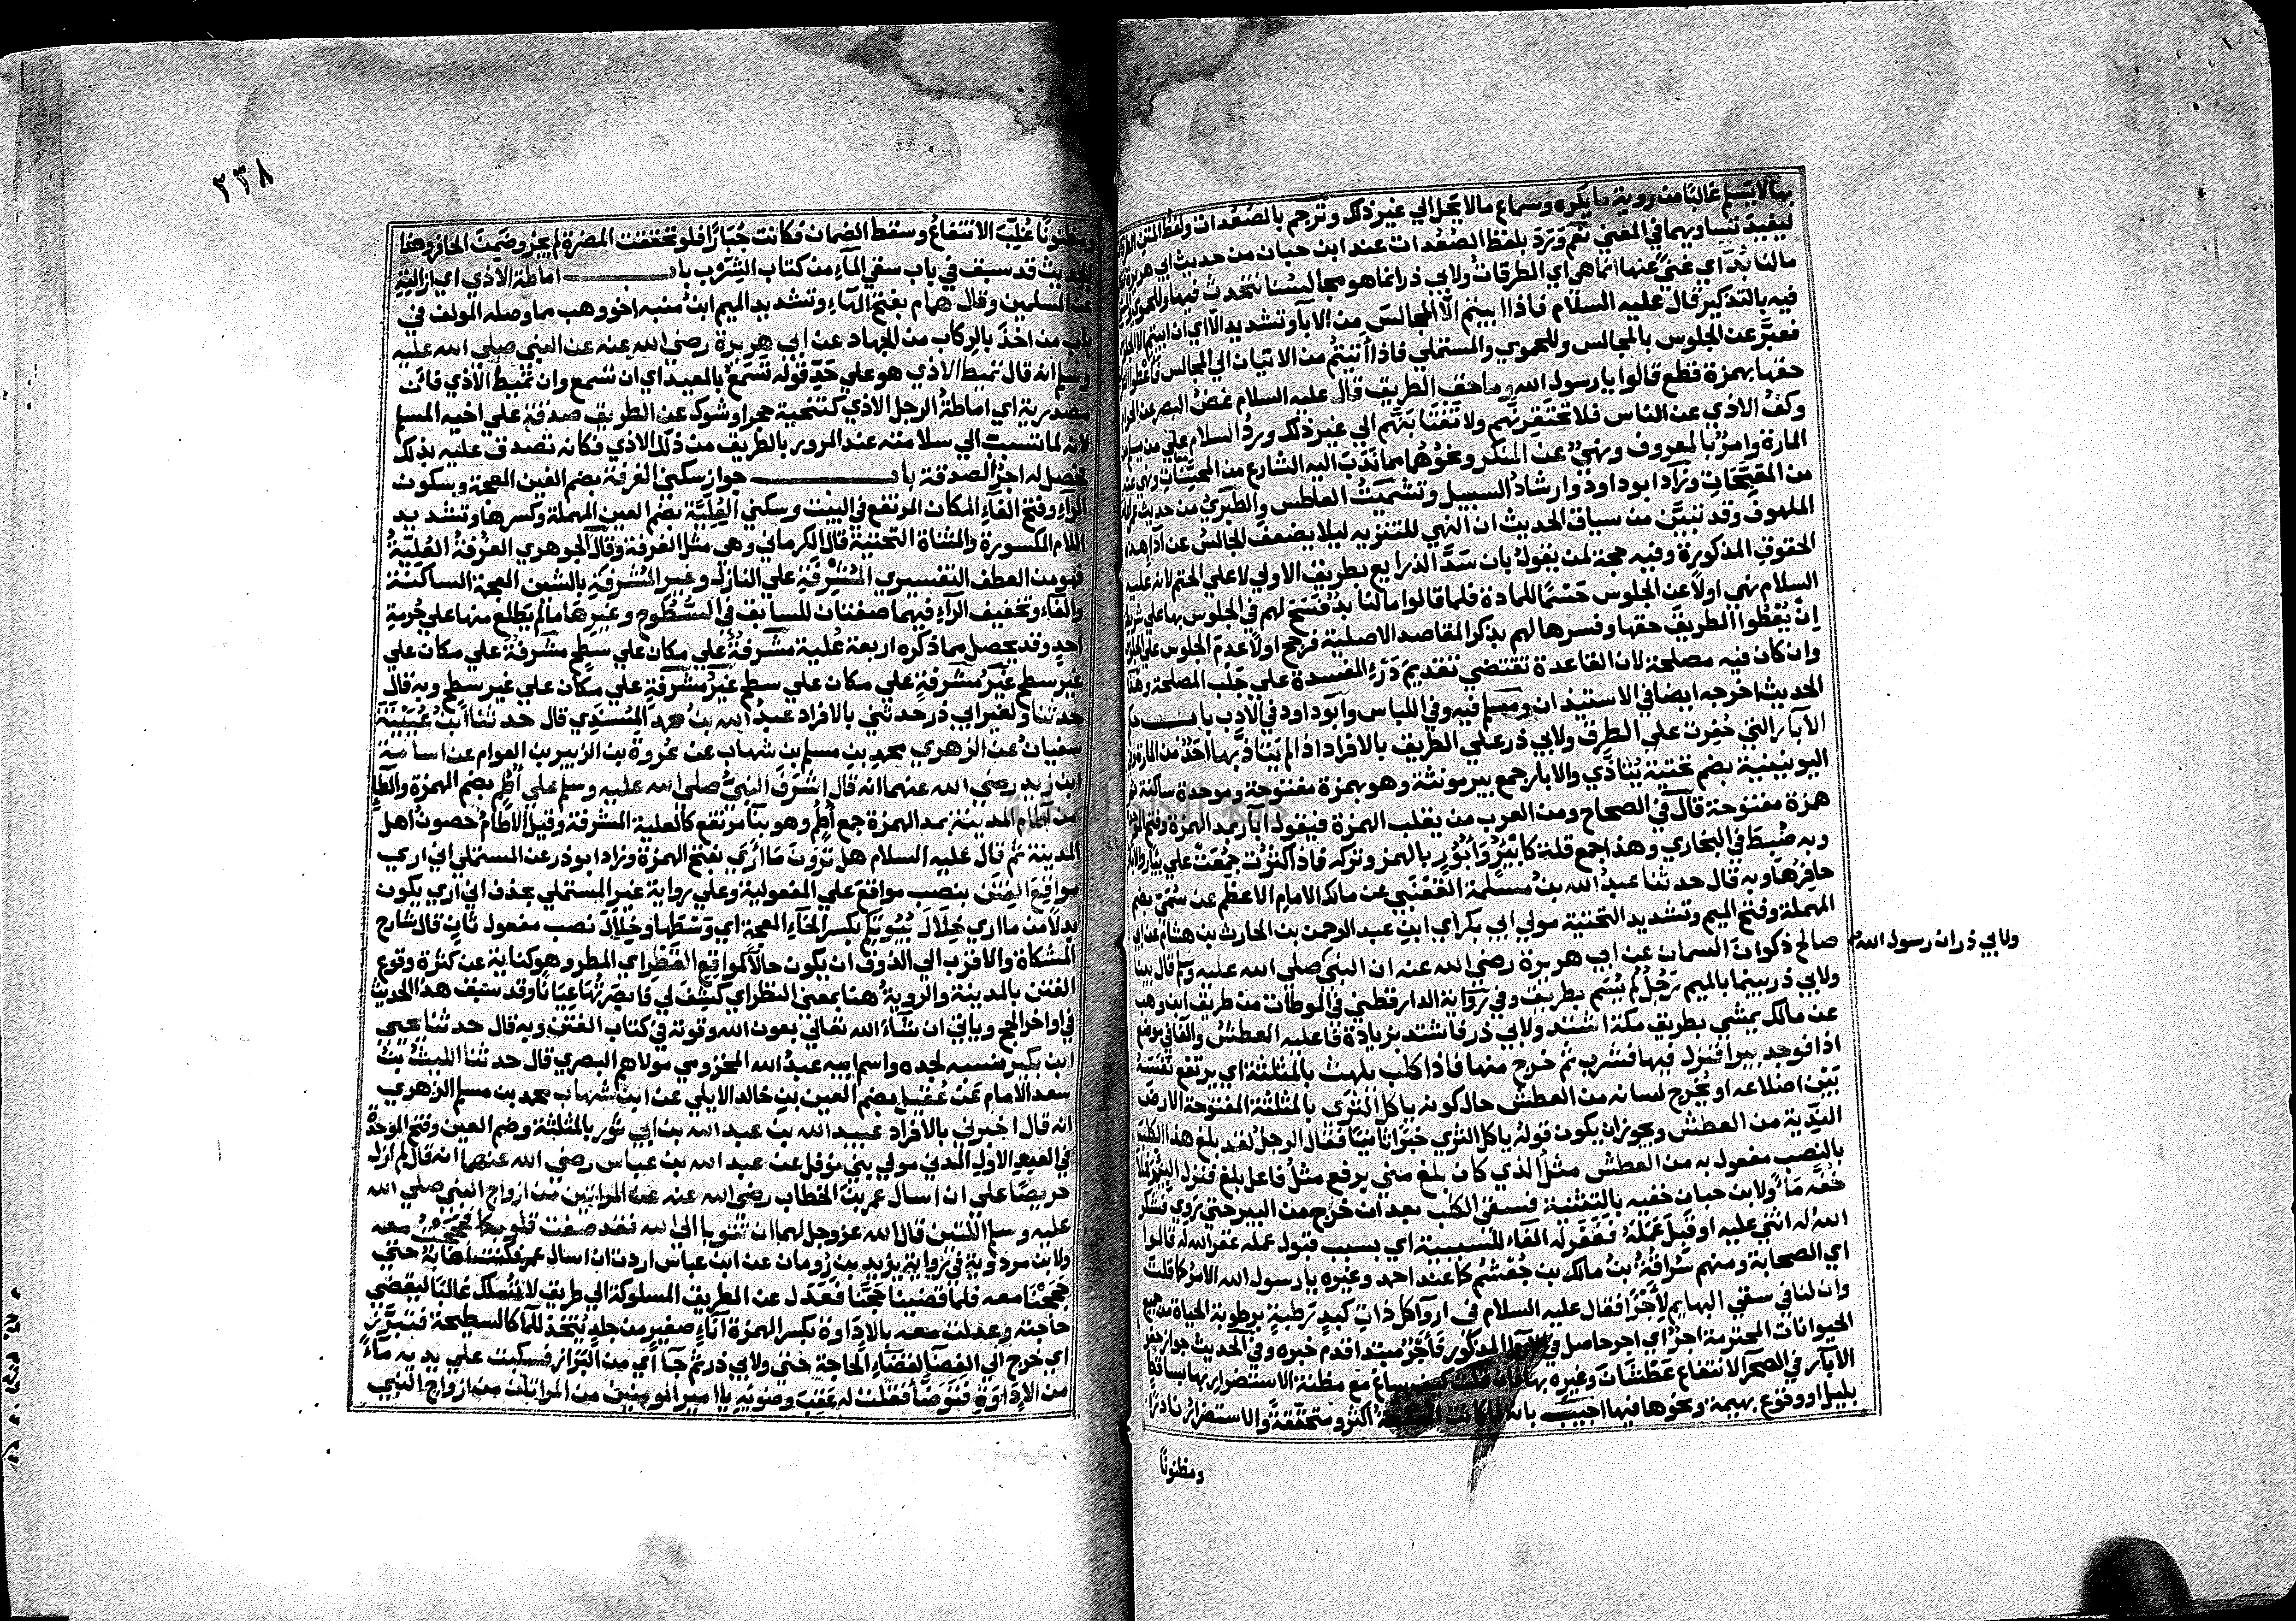 بها لا يسلم غالبا من روية ما يكره وسماع ما لا يحل الي غير ذلك وترجم بالصعدات ولفظ المتن الطرقات
ليفيد تساويهما في المعني نعم ورد بلفظ الصعدات عند ابن حبان من حديث ابي هريرة
ما لنا بد اي غني عنها انما هي اي الطرقات ولابي ذر انما هو مجالسنا نتحدث فيها وللحموي
فيه بالتذكير قال عليه السلام فاذا ابيتم الا المجالس من الابآ وتشديد الا اي ان ابيتم الا الجلوس
فعبر عن الجلوس بالمجالس وللحموي والمستملي فاذا اتيتم من الاتيان الي المجالس فاعطوا الطريق
حقها بهمزة قطع قالوا يا رسول الله وما حق الطريق قال عليه السلام غض البصر عن الحرام
وكف الاذي عن الناس فلا تحتقرنهم ولا تغتابنهم الي غير ذلك ورد السلام علي من يسلم من
المارة وامر بالمعروف ونهي عن المنكر ونحوهما مما ندب اليه الشارع من المحسنات ونهي عنه
من المقبحات وزاد ابو داود وارشاد السبيل وتشميت العاطس والطبري من حديث عمر اغاثة
الملهوف وقد تبين من سياق الحديث ان النهي للتنزيه ليلا يضعف الجالس عن آدآ هذه
الحقوق المذكورة وفيه حجة لمن يقول بان سد الذرايع بطريق الاولي لا علي الحتم لانه عليه
السلام نهي اولا عن الجلوس حسما للمادة فلما قالوا ما لنا بد فسح لهم في الجلوس بها علي شريطة
ان يعطوا الطريق حقها وفسرها لهم بذكر المقاصد الاصلية فرجح اولا عدم الجلوس علي الجلوس
وان كان فيه مصلحة لان القاعدة تقتضي تقديم درء المفسدة علي جلب المصلحة وهذا
الحديث اخرجه ايضا في الاستيذان ومسلم فيه وفي اللباس وابو داود في الادب باب
الآبار التي حفرت علي الطرق ولابي ذر علي الطريق بالافراد اذا لم يتاذ بها احد من المارة
اليونينية بضم تحتية يتاذي والابار جمع بير مونثة وهو بهمزة مفتوحة وموحدة ساكنة
همزة مفتوحة قال في الصحاح ومن العرب من يقلب الهمزة فيقول آبار بمد الهمزة وفتح الموحدة
وبه ضبط في البخاري وهذا جمع قلة كابئر وابور بالهمز وتركه فاذا كثرت جمعت علي بئار
حافرها وبه قال حدثنا عبد الله بن مسلمة القعنبي عن مالك الامام الاعظم عن سمي بضم
المهملة وفتح الميم وتشديد التحتية مولي ابي بكر اي ابن عبد الرحمن بن الحارث بن هشام عن ابي
صالح ذكوان السمان عن ابي هريرة رضي الله عنه ان النبي صلي الله عليه وسلم قال بينا
ولابي ذر ان رسول الله
ولابي ذر بينما بالميم رجل لم يسم بطريق وفي رواية الدارقطني في الموطات من طريق ابن وهب
عن مالك يمشي بطريق مكة اشتد ولابي ذر فاشتد بزيادة فا عليه العطش والفا في موضع
اذا فوجد بيرا فنزل فيها فشرب ثم خرج منها فاذا كلب يلهث بالمثلثة اي يرتفع نفسه
بين اضلاعه او يخرج لسانه من العطش حال كونه ياكل الثري بالمثلثة المفتوحة الارض
الندية من العطش ويجوز ان يكون قوله ياكل الثري خبرا ثانيا فقال الرجل لقد بلغ هذا الكلب
بالنصب مفعول به من العطش مثل الذي كان بلغ مني يرفع مثل فاعل بلغ فنزل البير فملأ
خفه مآ ولابن حبان خفيه بالتثنية فسقي الكلب بعد ان خرج من البير حتي روي فشكر
الله له اثني عليه او قبل عمله فغفر له الفاء للسببية اي بسبب قبول عمله غفر الله له قالوا
اي الصحابة ومنهم سراقة بن مالك بن جعشم كما عند احمد وغيره يا رسول الله الامر كما قلت
وان لنا في سقي البهايم لأجرا فقال عليه السلام في ارواء كل ذات كبد رطبة برطوبة الحياة من جميع
الحيوانات المحترمة اجر اي اجر حاصل في الاروآ المذكور فاجر مبتدا قدم خبره وفي الحديث جواز حفر
الآبار في الصحرآ لانتفاع عطشان وغيره بها فان قلت كيف ساغ مع مظنة الاستضرار بها من ساقط
بليل او وقوع بهيمة ونحوها فيها اجيب بانه لما كانت المنفعة اكثر ومتحققة والاستضرار نادرا
ومظنونا
٢٣٨
ومظنونا غلب الانتفاع وسقط الضمان فكانت جبارا فلو تحققت المضرة لم يجز وضمن الحافر وهذا
الحديث قد سبق في باب سقي المآء من كتاب الشرب باب اماطة الاذي اي ازالته
عن المسلمين وقال همام بفتح الهآء وتشديد الميم ابن منبه اخو وهب مما وصله المولف في
باب من اخذ بالركاب من الجهاد عن ابي هريرة رضي الله عنه عن النبي صلي الله عليه
وسلم انه قال تميط الاذي هو علي حد قوله تسمع بالمعيدي اي ان تسمع وان تميط الاذي فان
مصدرية اي اماطة الرجل الاذي كتنحية حجر او شوك عن الطريق صدقة علي اخيه المسلم
لانه لما تسبب الي سلامته عند المرور بالطريق من ذلك الاذي فكانه تصدق عليه بذلك
فحصل له اجر الصدقة باب جواز سكني الغرفة بضم الغين المعجمة وسكون
الراء وفتح الفآء المكان المرتفع في البيت وسكني العلية بضم العين المهملة وكسرها وتشديد
اللام المكسورة والمثناة التحتية قال الكرماني وهي مثل الغرفة وقال الجوهري الغرفة العلية
فهو من العطف التفسيري المشرفة علي المنازل وغير المشرفة بالشين المعجمة الساكنة
والفآء وتخفيف الرآء فيهما صفتان للسابق في السطوح وغيرها ما لم يطلع منها علي حرمة
احد وقد يحصل مما ذكره اربعة علية مشرفة علي مكان علي سطح مشرفة علي مكان علي
غير سطح غير مشرفة علي مكان علي سطح غير مشرفة علي مكان علي غير سطح وبه قال
حدثنا ولغير ابي ذر حدثني بالافراد عبد الله بن محمد المسندي قال حدثنا ابن عيينة
سفيان عن الزهري محمد بن مسلم بن شهاب عن عروة بن الزبير بن العوام عن اسامة
ابن زيد رضي الله عنهما انه قال اشرف النبي صلي الله عليه وسلم علي اطم بضم الهمزة والطا
من آطام المدينة بمد الهمزة جمع اطم وهو بنآ مرتفع كالعلية المشرفة وقيل الآطام حصون اهل
المدينة ثم قال عليه السلام هل ترون ما اري بفتح الهمزة وزاد ابو ذر عن المستملي اني اري
مواقع الفتن بنصب مواقع علي المفعولية وعلي رواية غير المستملي بحذف اني اري يكون
بدلا من ما اري خلال بيوتكم بكسر الخآء المعجمة اي وسطها وخلال نصب مفعول ثان قال شارح
المشكاة والاقرب الي الذوق ان يكون حالا كمواقع القطر اي المطر وهو كناية عن كثرة وقوع
الفتن بالمدينة والروية هنا بمعني النظر اي كشف لي فابصرتها عيانا وقد سبق هذا الحديث
في اواخر الحج وياتي ان شآء الله تعالي بعون الله وقوته في كتاب الفتن وبه قال حدثنا يحيي
ابن بكير نسبه لجده واسم ابيه عبد الله المخزومي مولاهم البصري قال حدثنا الليث بن
سعد الامام عن عقيل بضم العين بن خالد الايلي عن ابن شهاب محمد بن مسلم الزهري
انه قال اخبرني بالافراد عبيد الله بن عبد الله بن ابي ثور بالمثلثة وضم العين وفتح الموحدة
في العبد الاول المدني مولي بني نوفل عن عبد الله بن عباس رضي الله عنهما انه قال لم ازل
حريصا علي ان اسال عمر بن الخطاب رضي الله عنه عن المراتين من ازواج النبي صلي الله
عليه وسلم اللتين قال الله عز وجل لهما ان تتوبا الي الله فقد صغت قلوبكما فحججت معه
ولابن مردوية في رواية يزيد بن رومان عن ابن عباس اردت ان اسال عمر فكنت اهابه حتي
حججنا معه فلما قضينا حجنا فعدل عن الطريق المسلوكة الي طريق لا تسلك غالبا ليقضي
حاجته وعدلت معه بالاداوة بكسر الهمزة انآء صغير من جلد يتخذ للمآ كالسطيحة فتبرز
اي خرج الي الفضآ لقضآء الحاجة حتي ولابي ذر ثم جآ اي من البراز فسكبت علي يديه مآء
من الاداوة فتوضأ فقلت له عقب وضوئه يا امير المومنين من المراتان من ازواج النبي